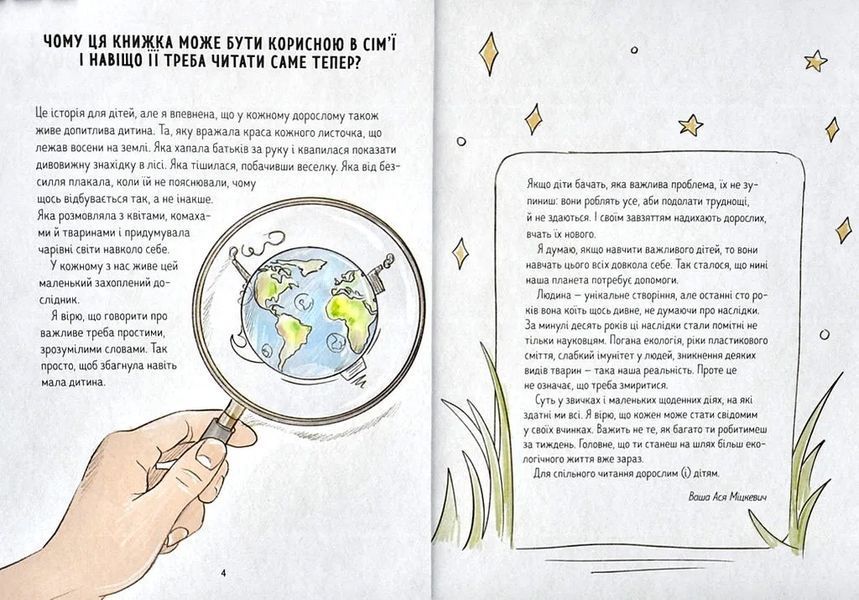 ЧОМУ ЦЯ КНИЖКА МОЖЕ БУТИ КОРИСНОЮ В СІМ'Ї
І НАВІЩО ЇЇ ТРЕБА ЧИТАТИ САМЕ ТЕПЕР?
Це історія для дітей, але я впевнена, що у кожному дорослому також
живе допитлива дитина. Та, яку вражала краса кожного листочка, що
лежав восени на землі. Яка хапала батьків за руку і квапилася показати
дивовижну знахідку в лісі. Яка тішилася, побачивши веселку. Яка від без-
силля плакала, коли їй не пояснювали, чому
щось відбувається так, а не інакше.
Яка розмовляла з квітами, комаха-
ми й тваринами і придумувала
чарівні світи навколо себе.
У кожному з нас живе цей
маленький захоплений до-
слідник.
Я вірю, що говорити про
важливе треба простими,
зрозумілими словами. Так
просто, щоб збагнула навіть
мала дитина.
4
Якщо діти бачать, яка важлива проблема, їх не зу-
пиниш: вони роблять усе, аби подолати труднощі,
й не здаються. І своїм завзяттям надихають дорослих,
вчать їх нового.
Я думаю, якщо навчити важливого дітей, то вони
навчать цього всіх довкола себе. Так сталося, що нині
наша планета потребує допомоги.
Людина – унікальне створіння, але останні сто ро-
ків вона коїть щось дивне, не думаючи про наслідки.
За минулі десять років ці наслідки стали помітні не
тільки науковцям. Погана екологія, ріки пластикового
сміття, слабкий імунітет у людей, зникнення деяких
видів тварин – така наша реальність. Проте це
не означає, що треба змиритися.
Суть у звичках і маленьких щоденних діях, на які
здатні ми всі. Я вірю, що кожен може стати свідомим
у своїх вчинках. Важить не те, як багато ти робитимеш
за тиждень. Головне, що ти станеш на шлях більш еко-
логічного життя вже зараз.
Для спільного читання дорослим (і) дітям.
Ваша Ася Міцкевич